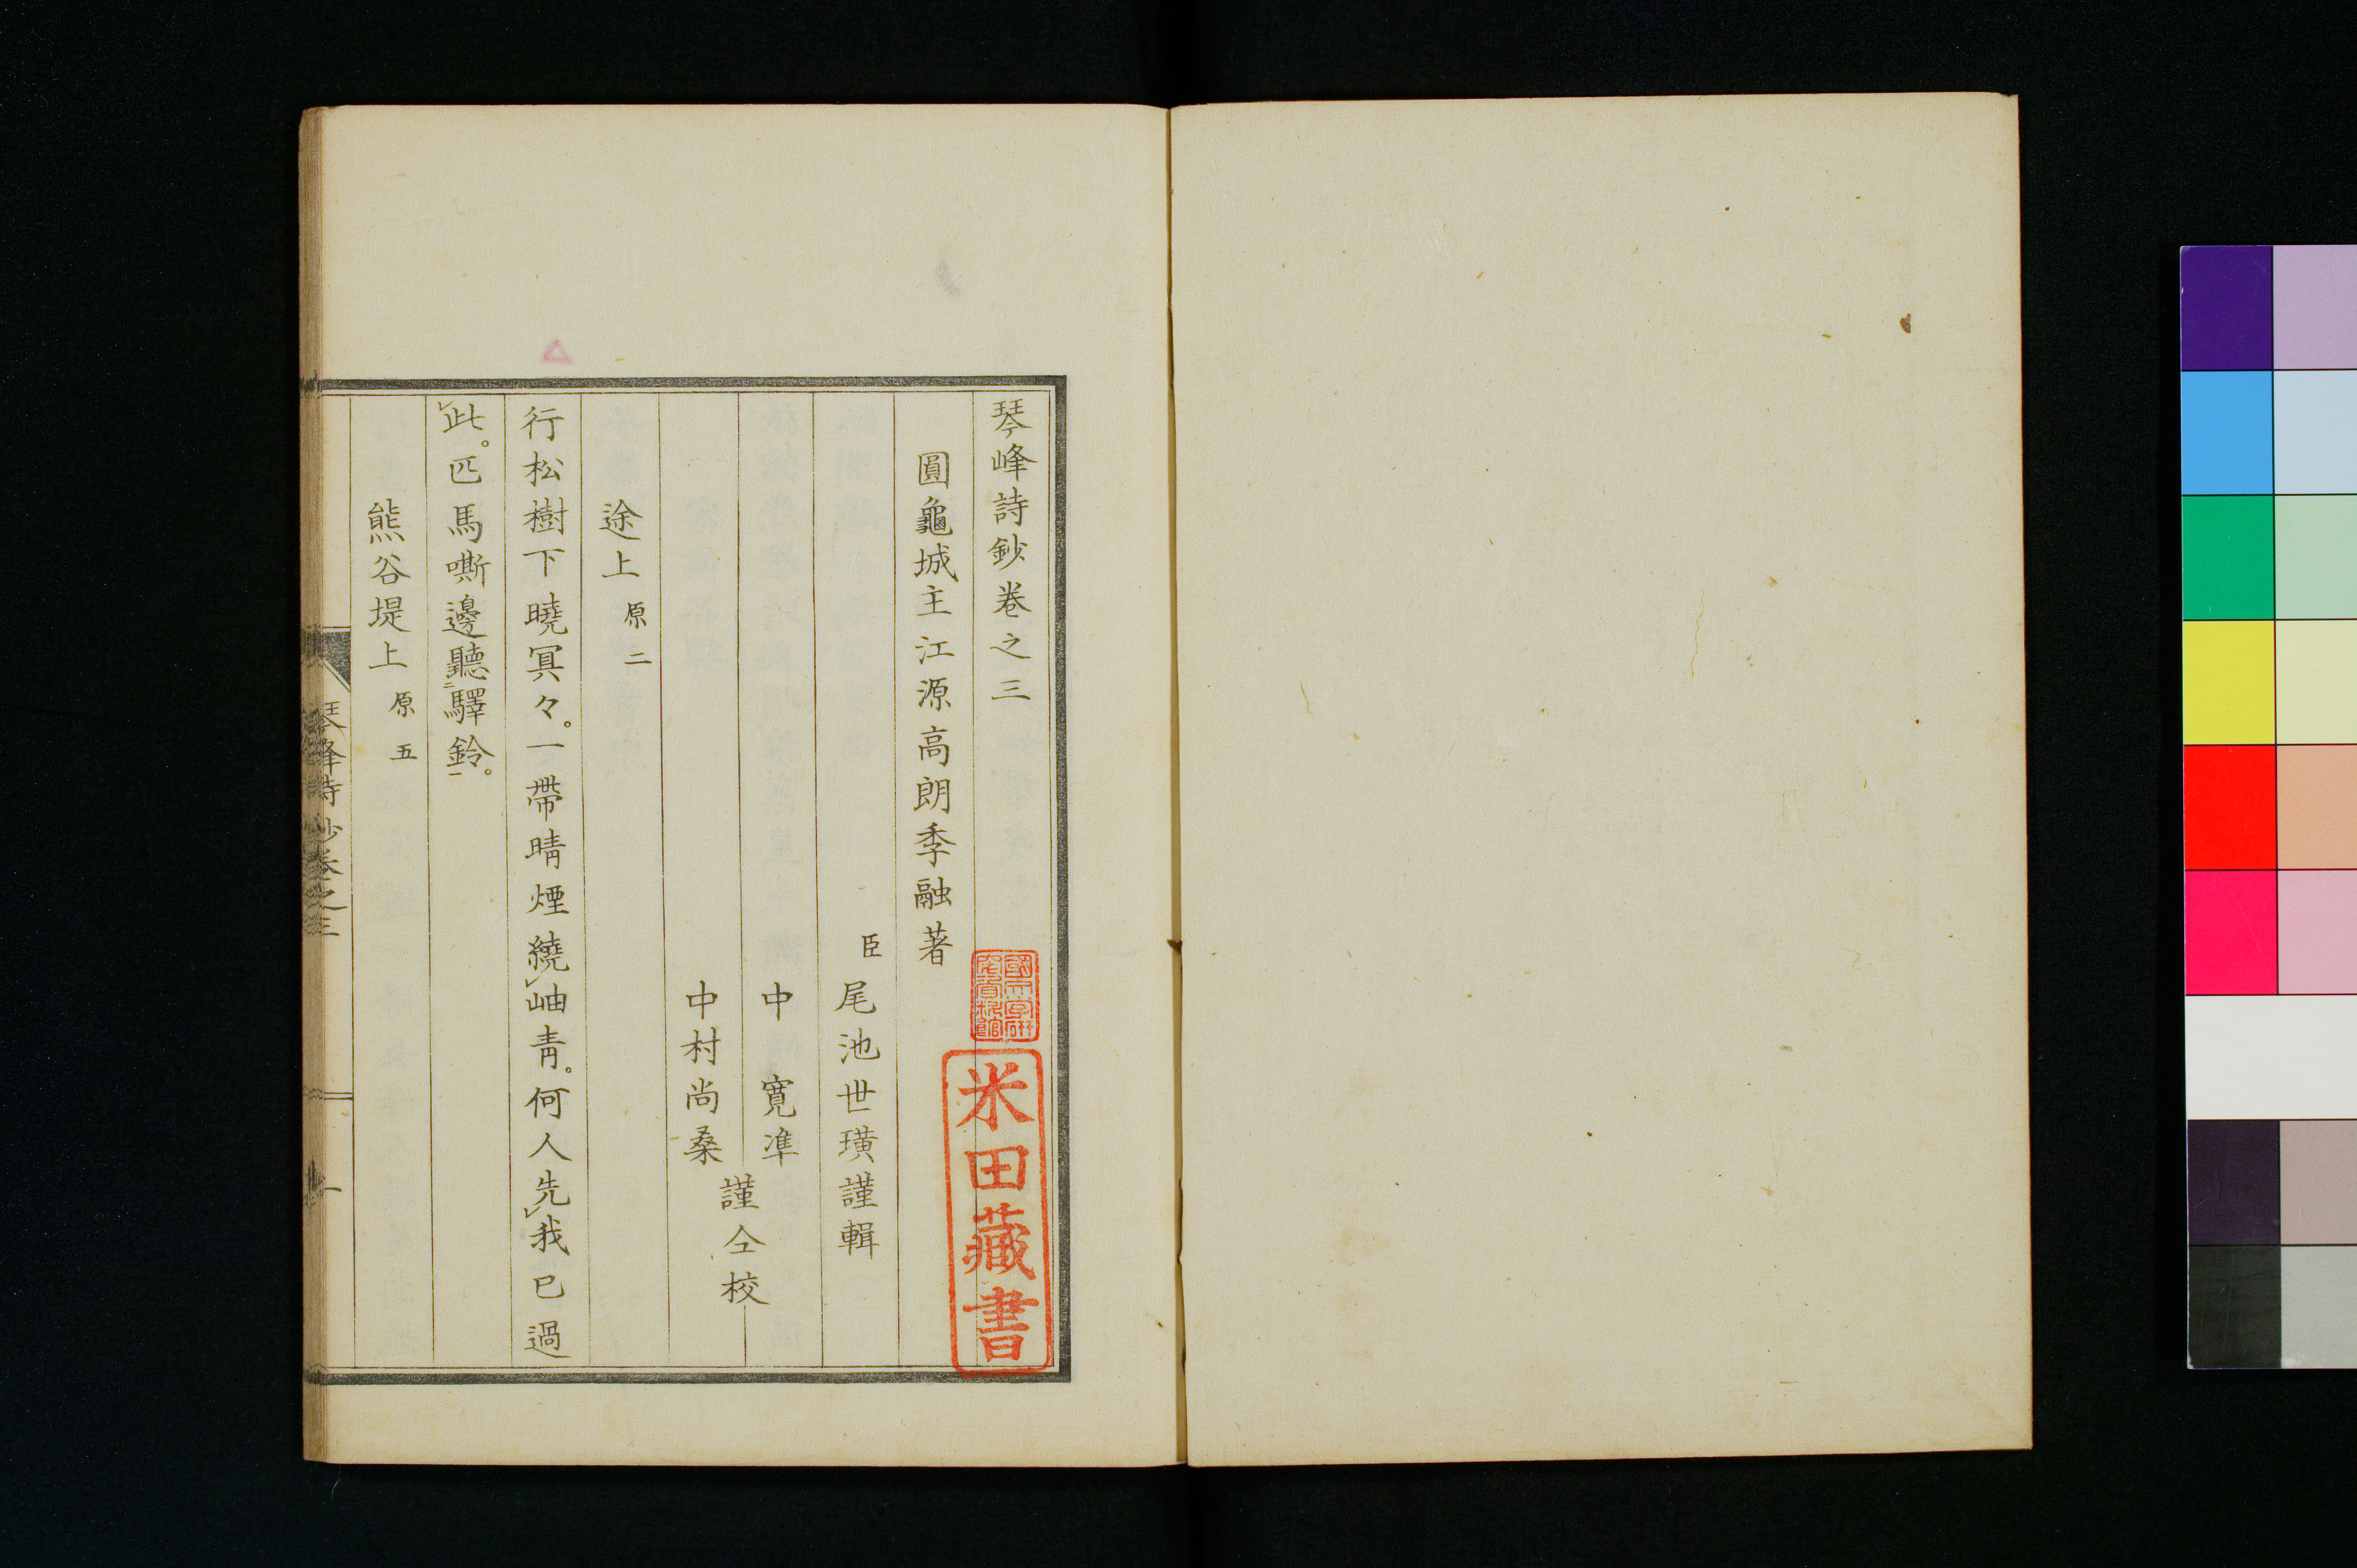 琴峰詩鈔卷之三
圓龜城主江源高朗季融著
臣 尾池世璜謹輯
中 寬準
中村尚桑
謹仝校
途上 原二
行松樹下曉冥々。一帶晴煙繞レ岫青。何人先レ我已過
レ此。匹馬嘶邊聽二驛鈴一。
熊谷堤上 原五
琴峰詩鈔卷之三
一
米田藏書
國文學研究資料館
△